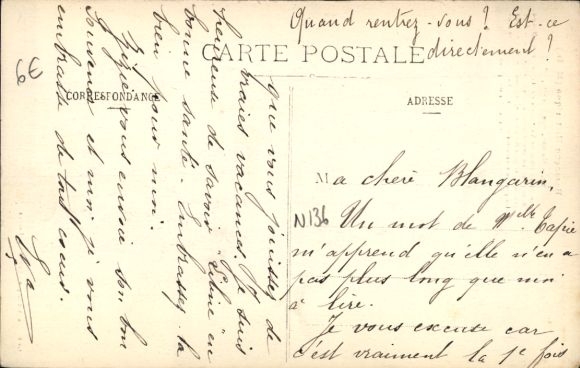 Quand rentrez-vous? Est-ce
directement?
CARTE POSTALE
CORRESPONDANCE
ADRESSE
6E
N136
Ma chère Blangarin,
Un mot de Mlle Capie
m'apprend qu'elle n'en a
pas plus long que moi
à lire.
Je vous excuse car
c'est vraiment la 1e fois
que vous jouissez de
vraies vacances. Je suis
heureuse de savoir Céline en
bonne santé. Embrassez-la
bien pour moi.
Zizie vous envoie son bon
souvenir et moi je vous
embrasse de tout cœur.
Eva